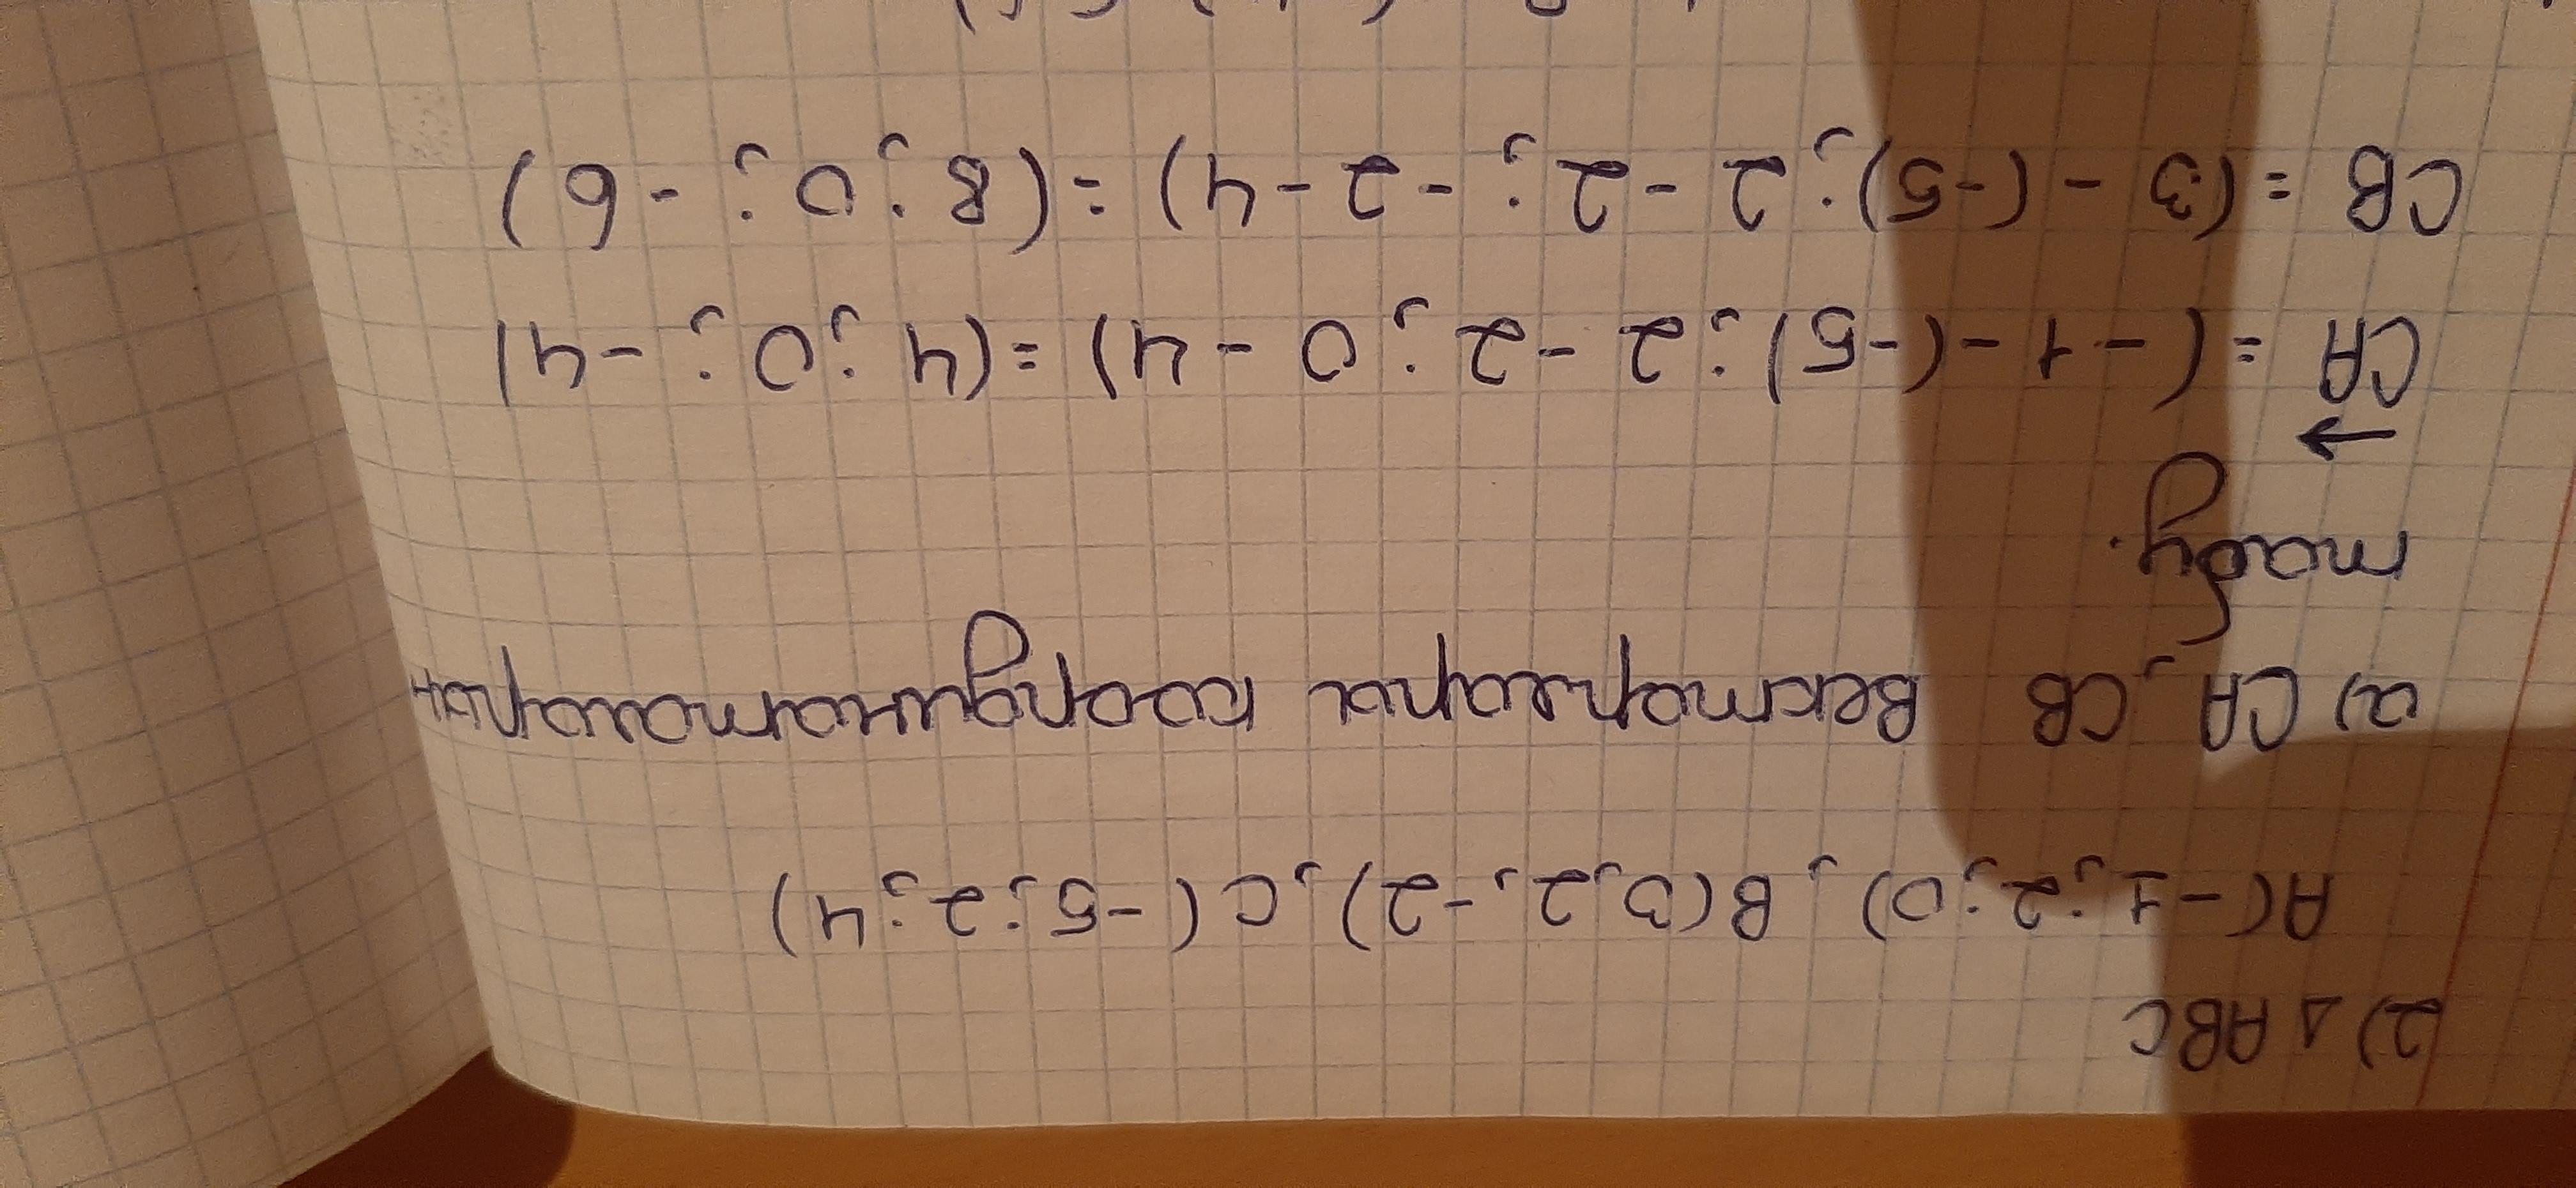 2) △ ABC
A(-1; 2; 0); B(3; 2; -2); C(-5; 2; 4)
a) CA, CB векторлары координаталарын
табу.
CA = (-1-(-5); 2-2; 0-4) = (4; 0; -4)
CB = (3-(-5); 2-2; -2-4) = (8; 0; -6)